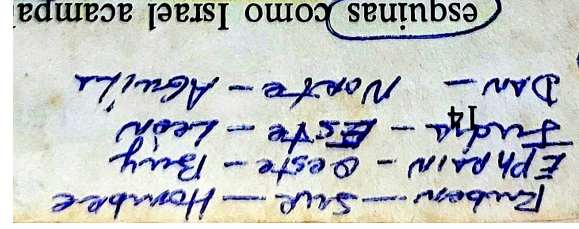 Ruben — Sur — Hombre
Ephrain — Oeste — Buey
Juda — Este — León
14
Dan — Norte — Aguila
esquinas como Israel acampa